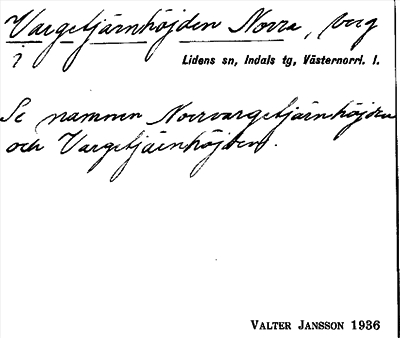 Vargetjärnhöjden Norra, berg
i
Lidens sn, Indals tg, Västernorrl. l.
Se namnen Norrvargetjärnhöjden
och Vargetjärnhöjden.
VALTER JANSSON 1936